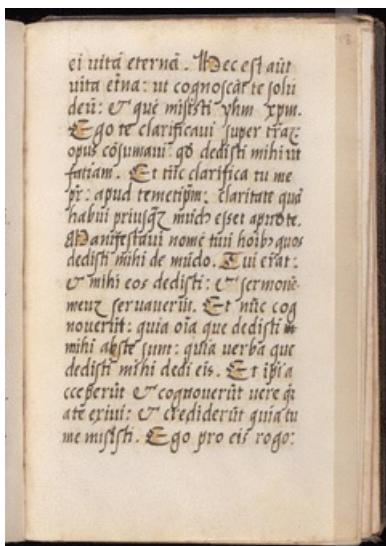 ei vitā eternā. Hec est aūt
vita et̄na: ut cognoscāt te solū
deū: & quē misisti yhm xpm.
Ego te clarificavi super trāz:
opus cōsumavi: qd̄ dedisti mihi ut
fatiam. Et nūc clarifica tu me
pr̄: apud temetip̄m: claritate quā
habui priusq̄z mūdꝰ esset apud te.
Manifestavi nomē tuū hoībꝰ quos
dedisti mihi de mūdo. Tui erāt:
& mihi eos dedisti: & sermonē
meuz servaverūt. Et nūc cog
noverūt: quia oīa que dedisti
mihi abste sunt: quia verba que
dedisti mihi dedi eis. Et ip̄i a
cceperūt & cognoverūt vere q̄
ate exivi: & crediderūt quia tu
me misisti. Ego pro eis rogo: